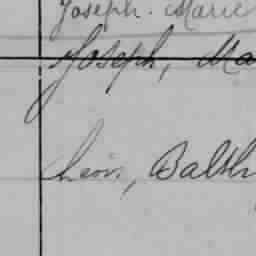 Joseph. Marie
Joseph, Ma
Léon, Balth